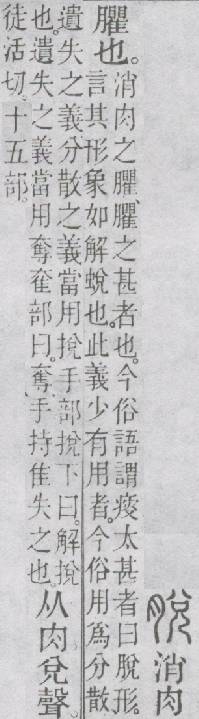 脫 消肉
臞也。
消肉之臞、臞之甚者也。今俗語謂瘦太甚者曰脫形。
言其形象如解蛻也。此義少有用者。今俗用爲分散
遺失之義、分散之義當用挩。手部挩下曰。解挩
也。遺失之義當用奪。奞部曰。奪、手持隹失之也。
从肉兌聲。
徒活切。十五部。